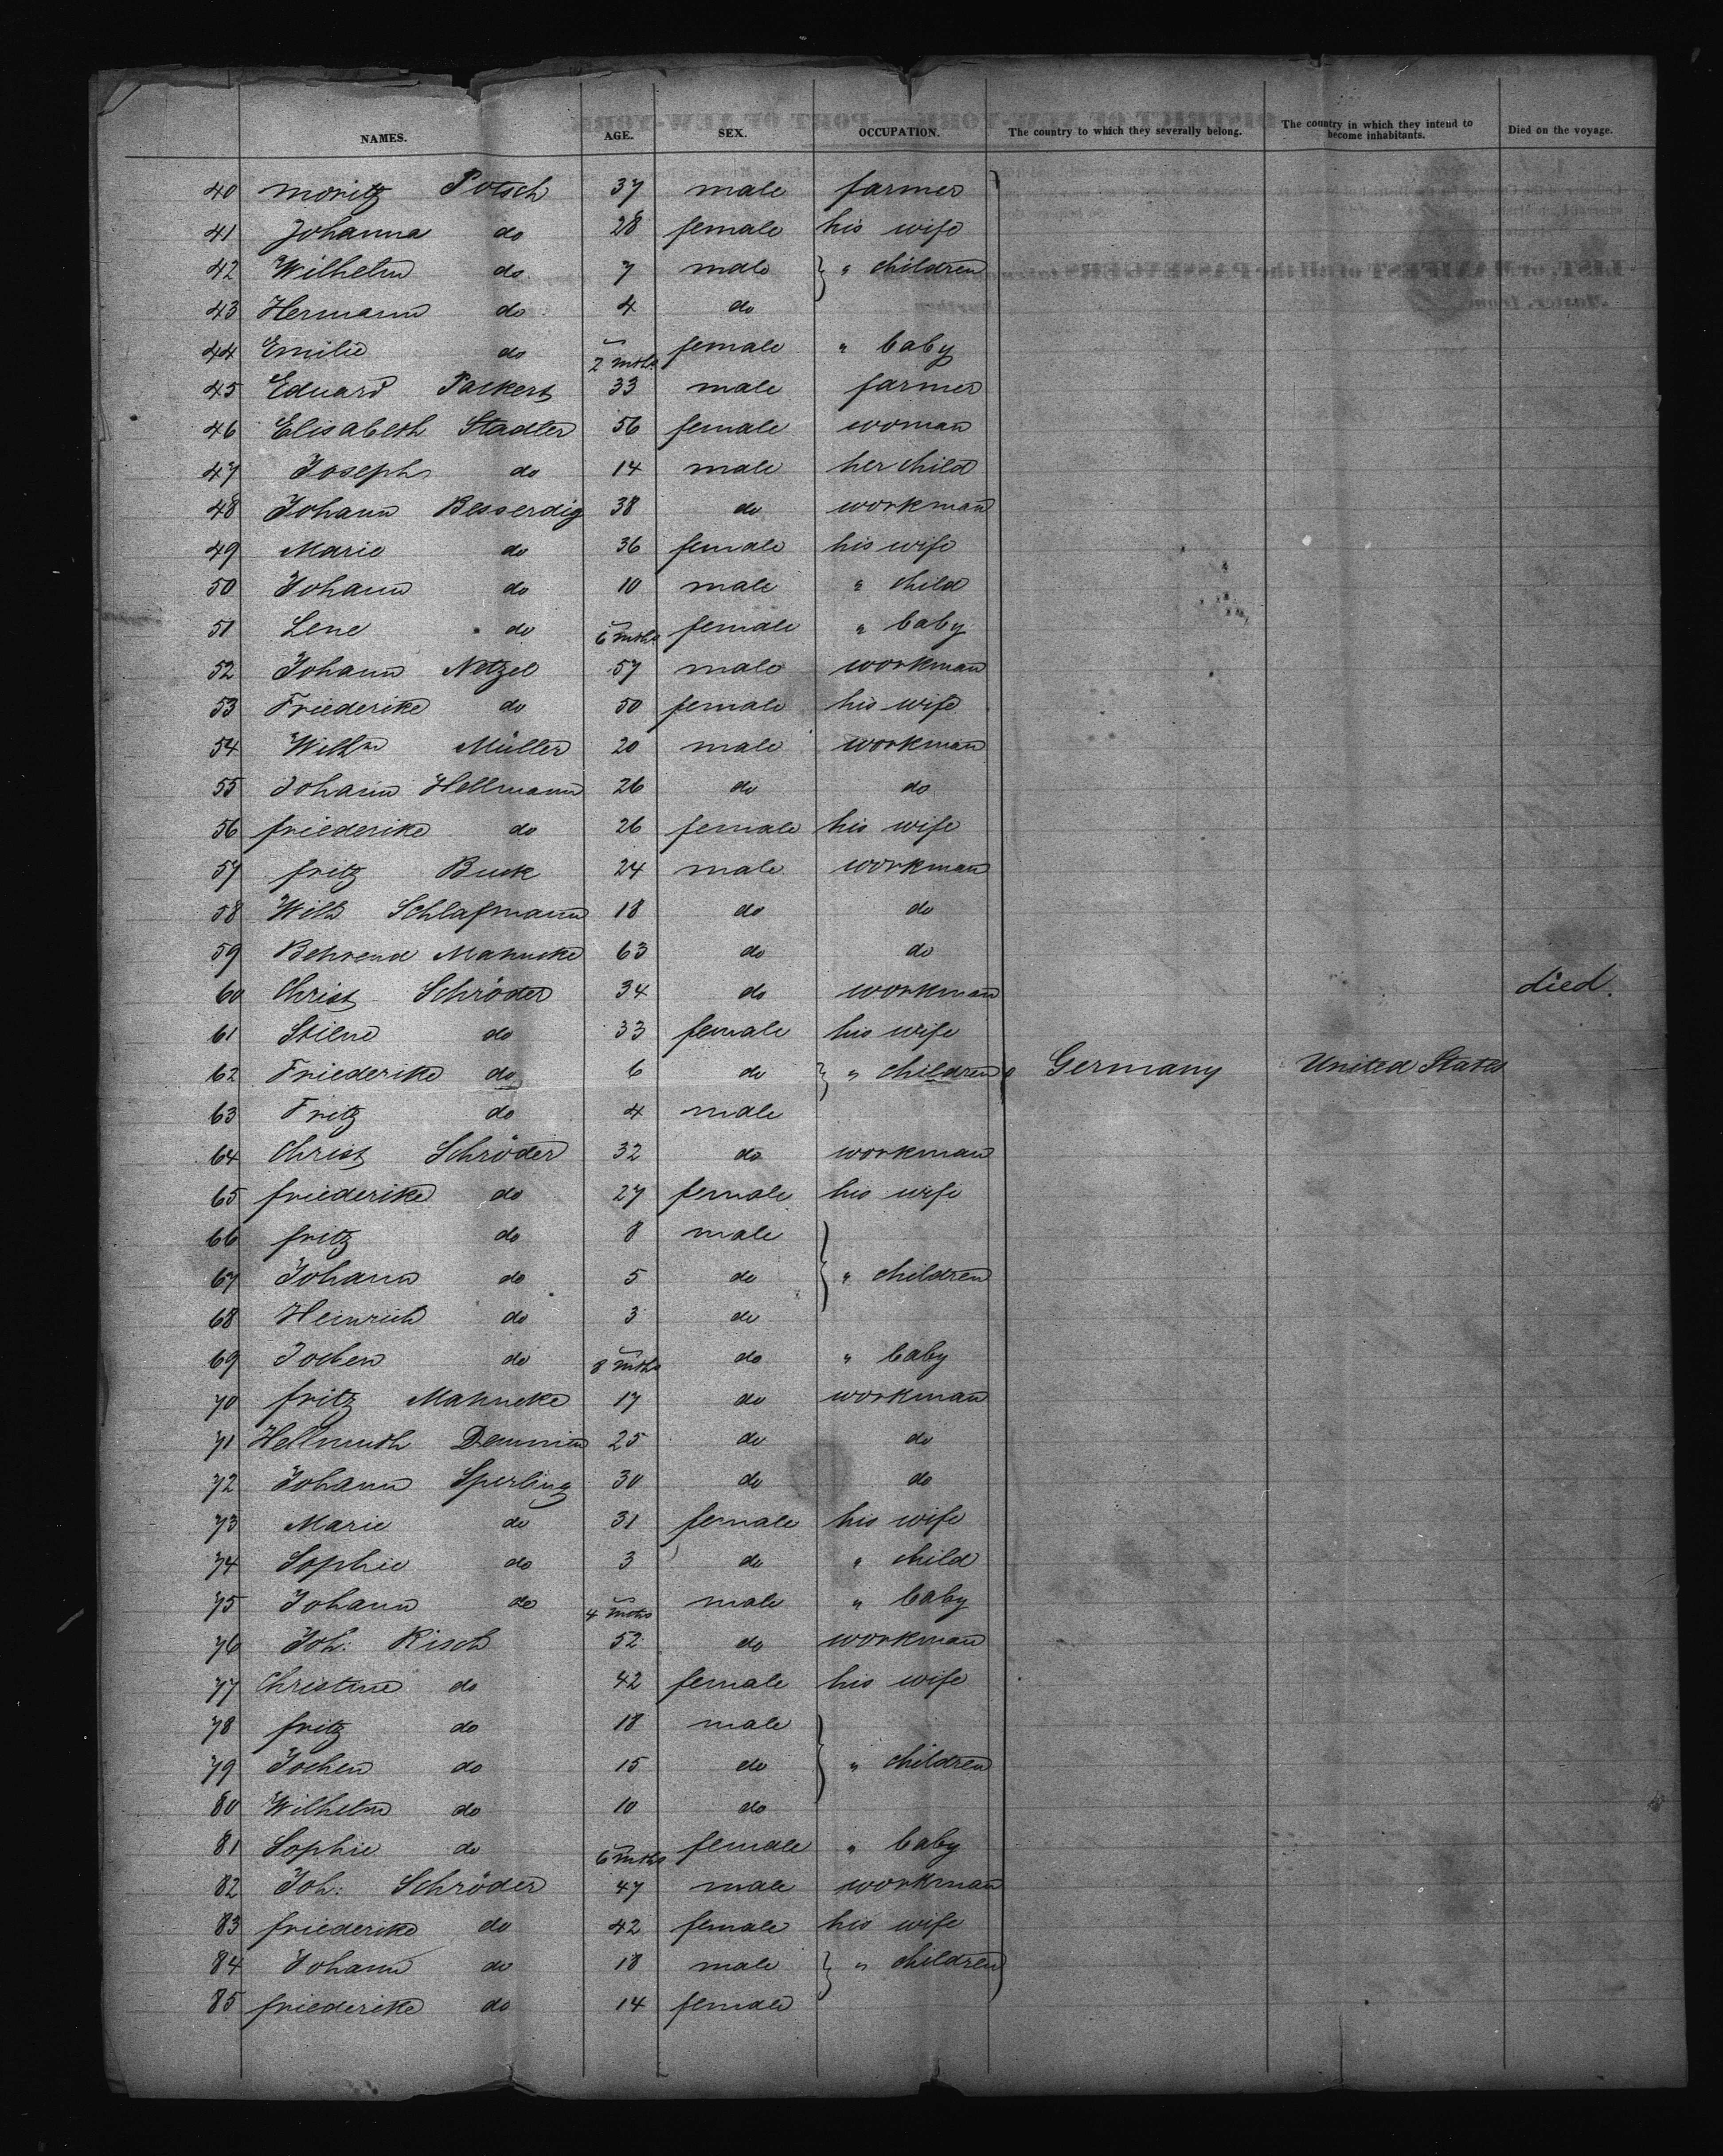 NAMES. AGE. SEX. OCCUPATION. The country to which they severally belong. The country in which they intend to become inhabitants. Died on the voyage.
40 Moritz Potsch 37 male farmer
41 Johanna do 28 female his wife
42 Wilhelm do 7 male } " children
43 Hermann do 4 do
44 Emilie do 2 mths female " baby
45 Eduard Packert 33 male farmer
46 Elisabeth Stadler 56 female woman
47 Joseph do 14 male her child
48 Johann Besserdig 38 do workman
49 Marie do 36 female his wife
50 Johann do 10 male " child
51 Lene do 6 mths female " baby
52 Johann Netzel 57 male workman
53 Friederike do 50 female his wife
54 Wilhm Müller 20 male workman
55 Johann Hellmann 26 do do
56 friederike do 26 female his wife
57 fritz Buck 24 male workman
58 Wilh Schlafmann 18 do do
59 Behrend Mahncke 63 do do
60 Christ Schröder 34 do workman died.
61 Stiene do 33 female his wife
62 Friederike do 6 do } " children Germany United States
63 Fritz do 4 male
64 Christ Schröder 32 do workman
65 friederike do 27 female his wife
66 fritz do 8 male
67 Johann do 5 do } " children
68 Heinrich do 3 do
69 Jochen do 8 mths do " baby
70 fritz Mahncke 17 do workman
71 Hellmuth Demmin 25 do do
72 Johann Sperling 30 do do
73 Marie do 31 female his wife
74 Sophie do 3 do " child
75 Johann do 4 mths male " baby
76 Joh: Risch 52 do workman
77 Christine do 42 female his wife
78 fritz do 18 male
79 Jochen do 15 do } " children
80 Wilhelm do 10 do
81 Sophie do 6 mths female " baby
82 Joh: Schröder 47 male workman
83 friederike do 42 female his wife
84 Johann do 18 male } " children
85 friederike do 14 female